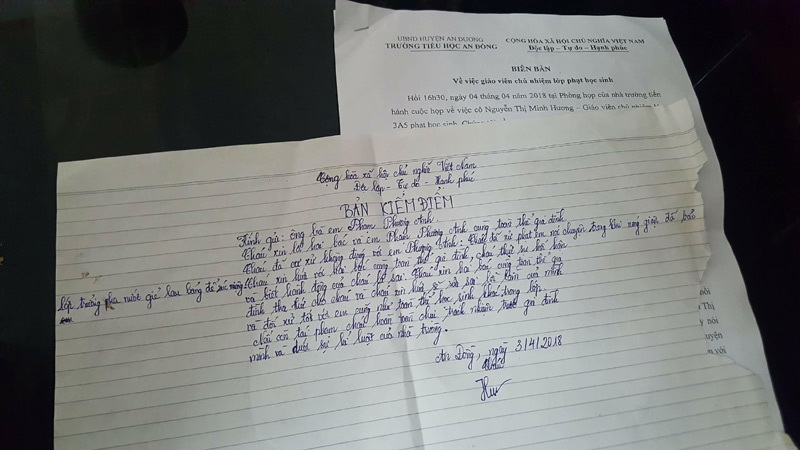 UBND HUYỆN AN DƯƠNG
TRƯỜNG TIỂU HỌC AN ĐỒNG
CỘNG HÒA XÃ HỘI CHỦ NGHĨA VIỆT NAM
Độc lập – Tự do – Hạnh phúc
BIÊN BẢN
Về việc giáo viên chủ nhiệm lớp phạt học sinh
Hồi 16h30, ngày 04 tháng 04 năm 2018 tại Phòng họp của nhà trường tiến
hành cuộc họp về việc cô Nguyễn Thị Minh Hương – Giáo viên chủ nhiệm
3A5 phạt học sinh.
Cộng hòa xã hội chủ nghĩa Việt Nam
Độc lập - Tự do - Hạnh phúc
BẢN KIỂM ĐIỂM
Kính gửi: ông bà em Phạm Phương Anh.
Cháu xin lỗi hai bác và em Phạm Phương Anh cùng toàn thể gia đình
Cháu đã cư xử không đúng với em Phương Anh. Cháu đã xử phạt em nói chuyện trong khi nóng giận đã bảo
lớp trưởng pha nước giẻ lau bảng để súc miệng.
Cháu xin hứa với hai bác cùng toàn thể gia đình, cháu thật sự hối hận
và biết hành động của cháu là sai. Cháu xin hai bác cùng toàn thể gia
đình tha thứ cho cháu và cháu xin hứa sẽ sửa sai lỗi lầm của mình
và đối xử tốt với em cũng như toàn thể học sinh khác trong lớp.
Nếu còn tái phạm cháu hoàn toàn chịu trách nhiệm trước gia đình
mình và dưới sự kỉ luật của nhà trường.
An Đồng, ngày 3/4/2018
Cháu
nói
Thị
y nói
uyện
m với